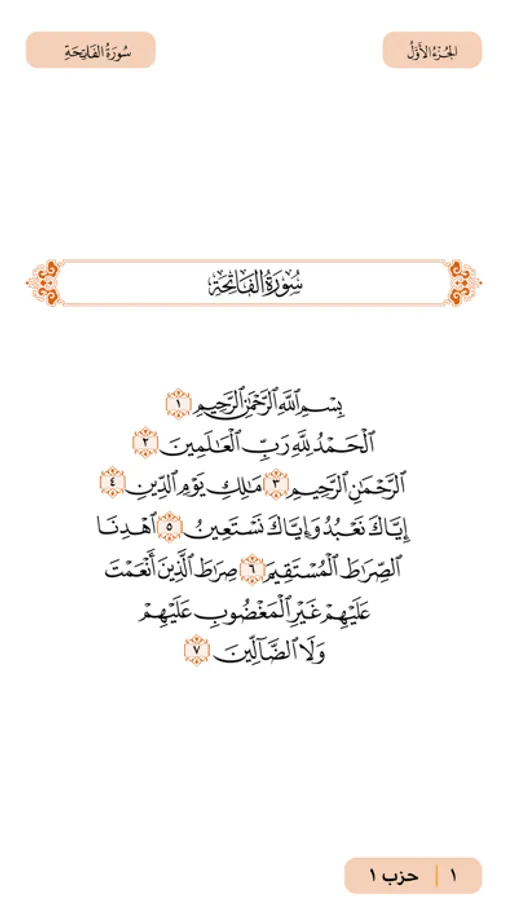 الجُزْءُ الأَوَّلُ
سُورَةُ الفَاتِحَةِ
سُورَةُ الفَاتِحَةِ
بِسْمِ ٱللَّهِ ٱلرَّحْمَٰنِ ٱلرَّحِيمِ ١
ٱلْحَمْدُ لِلَّهِ رَبِّ ٱلْعَٰلَمِينَ ٢
ٱلرَّحْمَٰنِ ٱلرَّحِيمِ ٣ مَٰلِكِ يَوْمِ ٱلدِّينِ ٤
إِيَّاكَ نَعْبُدُ وَإِيَّاكَ نَسْتَعِينُ ٥ ٱهْدِنَا
ٱلصِّرَٰطَ ٱلْمُسْتَقِيمَ ٦ صِرَٰطَ ٱلَّذِينَ أَنْعَمْتَ
عَلَيْهِمْ غَيْرِ ٱلْمَغْضُوبِ عَلَيْهِمْ
وَلَا ٱلضَّآلِّينَ ٧
١ | حزب ١